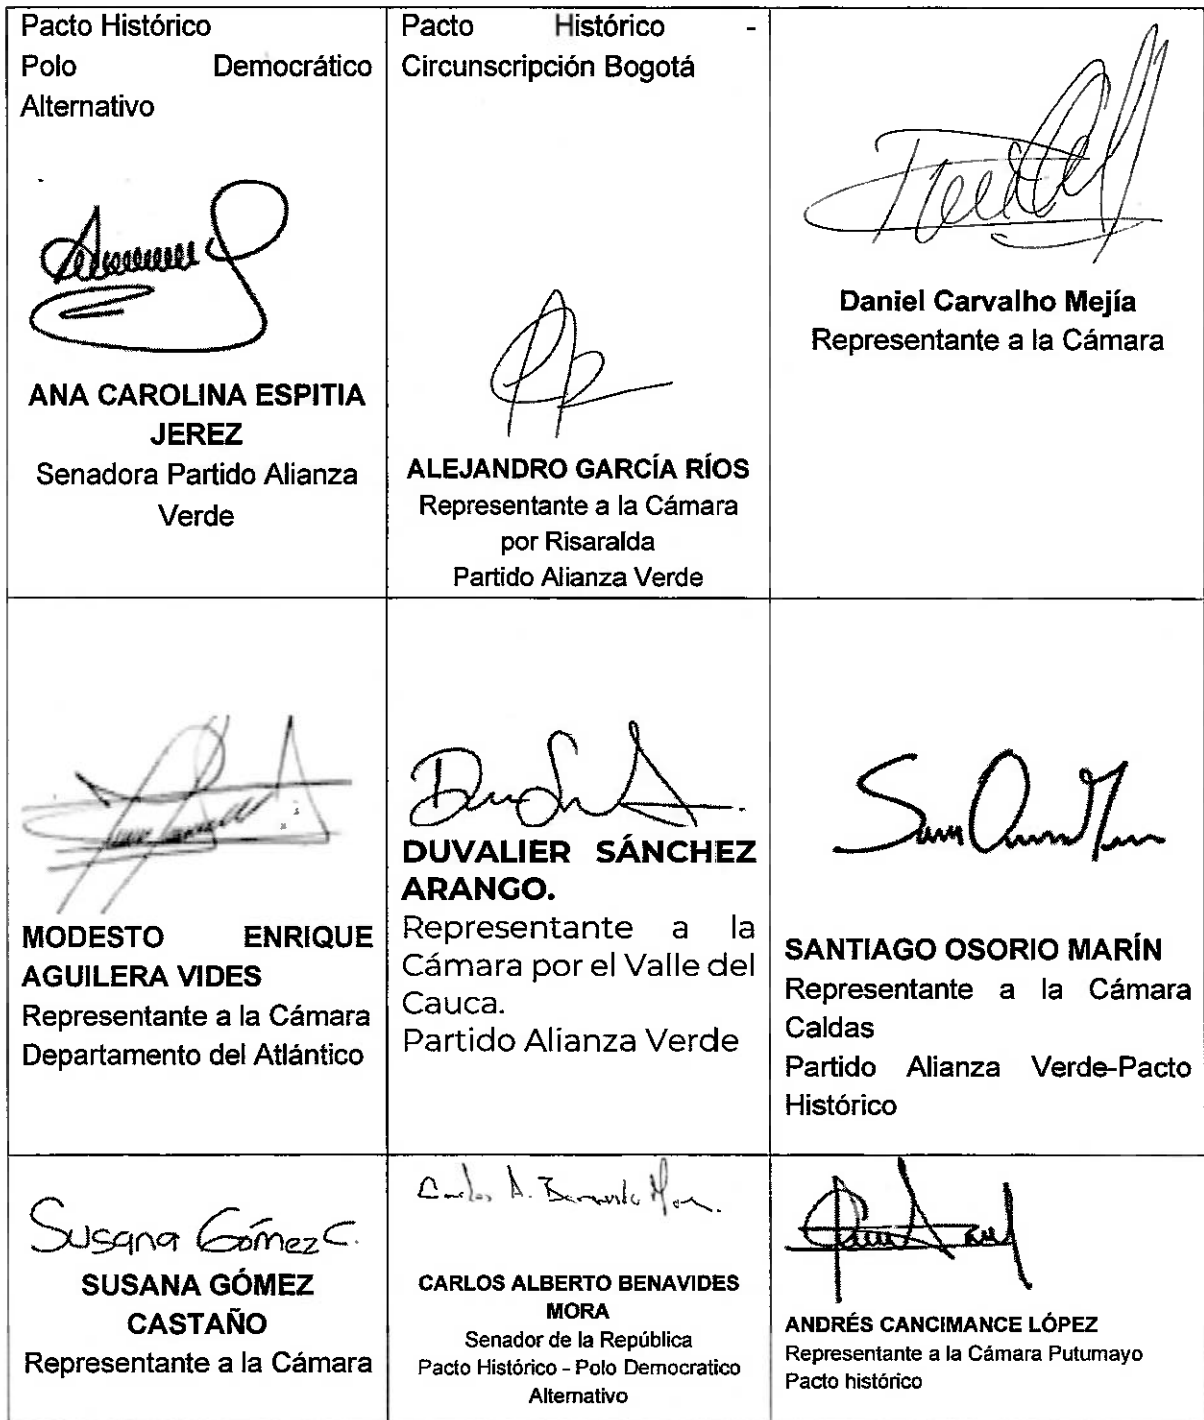 Pacto Histórico
Polo Democrático
Alternativo
ANA CAROLINA ESPITIA
JEREZ
Senadora Partido Alianza
Verde
Pacto Histórico -
Circunscripción Bogotá
ALEJANDRO GARCÍA RÍOS
Representante a la Cámara
por Risaralda
Partido Alianza Verde
Daniel Carvalho Mejía
Representante a la Cámara
MODESTO ENRIQUE
AGUILERA VIDES
Representante a la Cámara
Departamento del Atlántico
DUVALIER SÁNCHEZ
ARANGO.
Representante a la
Cámara por el Valle del
Cauca.
Partido Alianza Verde
SANTIAGO OSORIO MARÍN
Representante a la Cámara
Caldas
Partido Alianza Verde-Pacto
Histórico
Susana Gómez C.
SUSANA GÓMEZ
CASTAÑO
Representante a la Cámara
Carlos A. Benavides Mora.
CARLOS ALBERTO BENAVIDES
MORA
Senador de la República
Pacto Histórico - Polo Democratico
Alternativo
ANDRÉS CANCIMANCE LÓPEZ
Representante a la Cámara Putumayo
Pacto histórico